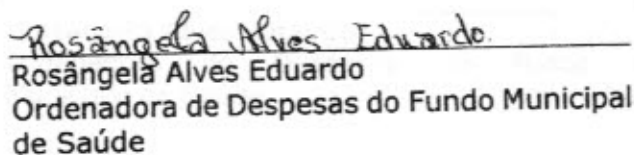 Rosângela Alves Eduardo.
Rosângela Alves Eduardo
Ordenadora de Despesas do Fundo Municipal
de Saúde